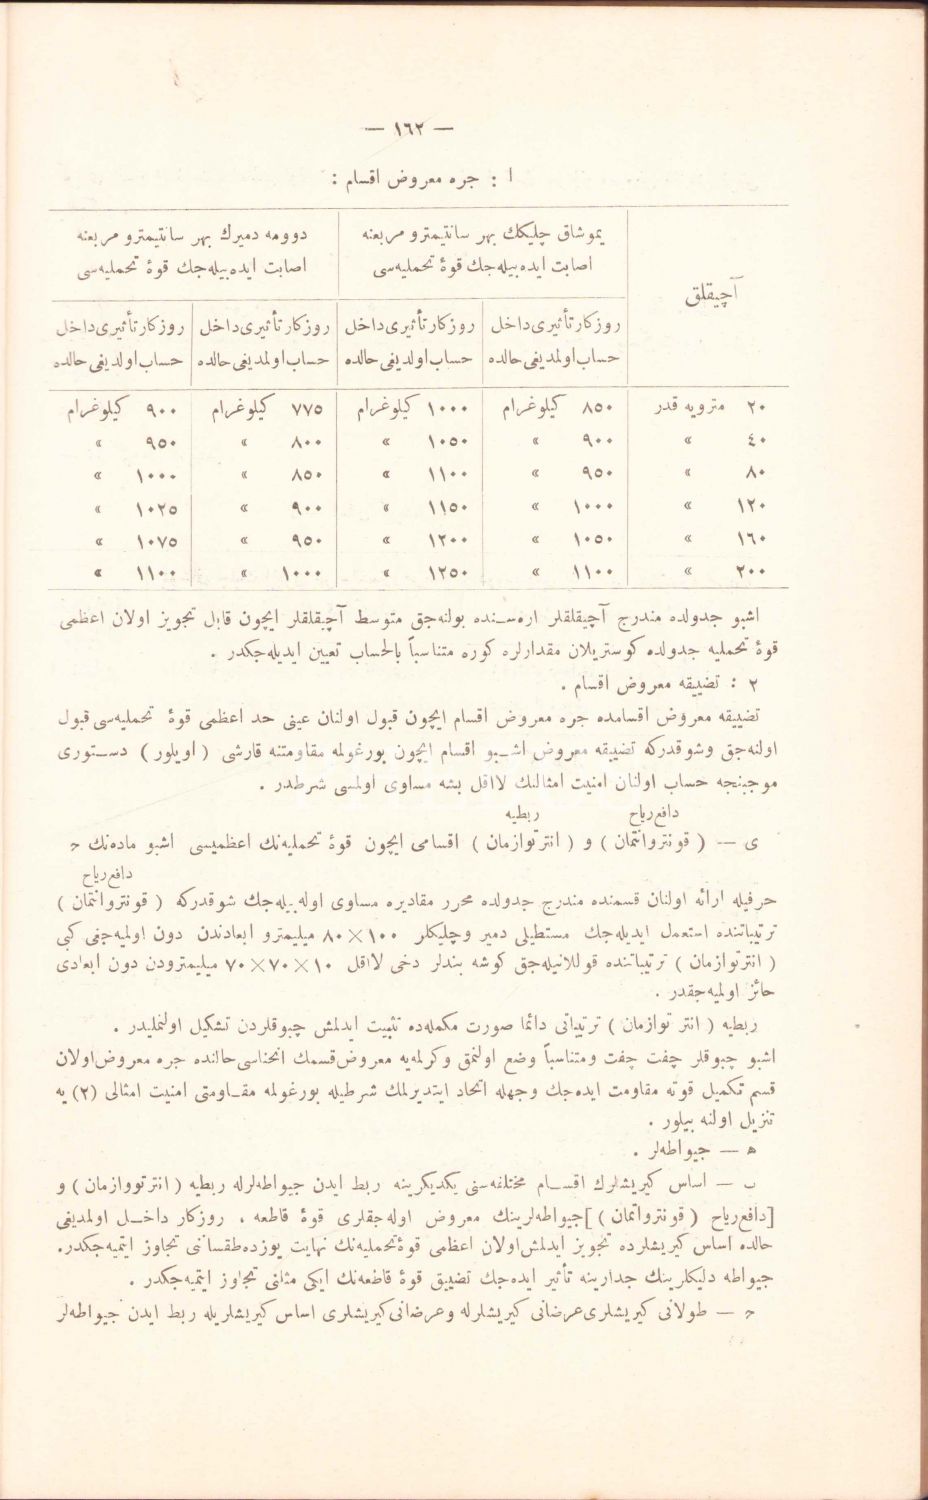 — ١٦٢ —
ا : جره معروض اقسام :
آچيقلق
يموشاق چليكك بهر سانتيمترو مربعنه
اصابت ايده‌بيله‌جك قوۀ تحمليه‌سى
دوومه دميرك بهر سانتيمترو مربعنه
اصابت ايده‌بيله‌جك قوۀ تحمليه‌سى
روزكار تأثيرى داخل حساب اولمديغى حالده
روزكار تأثيرى داخل حساب اولديغى حالده
روزكار تأثيرى داخل حساب اولمديغى حالده
روزكار تأثيرى داخل حساب اولديغى حالده
٢٠ مترويه قدر ٨٥٠ كيلوغرام ١٠٠٠ كيلوغرام ٧٧٥ كيلوغرام ٩٠٠ كيلوغرام
٤٠ » ٩٠٠ » ١٠٥٠ » ٨٠٠ » ٩٥٠ »
٨٠ » ٩٥٠ » ١١٠٠ » ٨٥٠ » ١٠٠٠ »
١٢٠ » ١٠٠٠ » ١١٥٠ » ٩٠٠ » ١٠٢٥ »
١٦٠ » ١٠٥٠ » ١٢٠٠ » ٩٥٠ » ١٠٧٥ »
٢٠٠ » ١١٠٠ » ١٢٥٠ » ١٠٠٠ » ١١٠٠ »
اشبو جدولده مندرج آچيقلقلر اره‌سنده بولنه‌جق متوسط آچيقلقلر ايچون قابل تجويز اولان اعظمى
قوۀ تحمليه جدولده كوستريلان مقدارلره كوره متناسباً بالحساب تعيين ايديله‌جكدر .
٢ : تضييقه معروض اقسام .
تضييقه معروض اقسامده جره معروض اقسام ايچون قبول اولنان عينى حد اعظمى قوۀ تحمليه‌سى قبول
اولنه‌جق وشوقدركه تضييقه معروض اشبو اقسام ايچون بورغولمه مقاومتنه قارشى ( اويلور ) دستورى
موجبنجه حساب اولنان امنيت امثالنك لااقل بشه مساوى اولمسى شرطدر .
دافع رياح ربطيه
ى — ( قونتروانتمان ) و ( انترتوازمان ) اقسامى ايچون قوۀ تحمليه‌نك اعظميسى اشبو ماده‌نك ﺣ
دافع رياح
حرفيله ارائه اولنان قسمنده مندرج جدولده محرر مقاديره مساوى اوله‌بيله‌جك شوقدركه ( قونتروانتمان )
ترتيباتنده استعمل ايديله‌جك مستطيلى دمير وچليكلر ١٠٠×٨٠ ميليمترو ابعادندن دون اولميه‌جغى كبى
( انترتوازمان ) ترتيباتنده قوللانيله‌جق كوشه بندلر دخى لااقل ١٠×٧٠×٧٠ ميليمترودن دون ابعادى
حائز اولميه‌جقدر .
ربطيه ( انتر توازمان ) ترتيباتى دائما صورت مكمله‌ده تثبيت ايدلمش چبوقلردن تشكيل اولنمليدر .
اشبو چبوقلر چفت چفت ومتناسباً وضع اولنمق وكرلمه‌يه معروض قسمك انحناسى حالنده جره معروض اولان
قسم تكميل قوته مقاومت ايده‌جك وجهله اتحاد ايتديرلمك شرطيله بورغولمه مقاومتى امنيت امثالى (٢) يه
تنزيل اولنه بيلور .
ﻫ — جيواطه‌لر .
ب — اساس كيريشلرك اقسام مختلفه‌سنى يكديكرينه ربط ايدن جيواطه‌لرله ربطيه ( انترتووازمان ) و
[دافع رياح ( قونترواتمان )] جيواطه‌لرينك معروض اوله‌جقلرى قوۀ قاطعه ، روزكار داخل اولمديغى
حالده اساس كيريشلرده تجويز ايدلمش اولان اعظمى قوۀ تحمليه‌نك نهايت يوزده طقساننى تجاوز ايتميه‌جكدر.
جيواطه دليكلرينك جدارينه تأثير ايده‌جك تضييق قوۀ قاطعه‌نك ايكى مثلنى تجاوز ايتميه‌جكدر .
ﺣ — طولانى كيريشلرى عرضانى كيريشلرله وعرضانى كيريشلرى اساس كيريشلريله ربط ايدن جيواطه‌لر